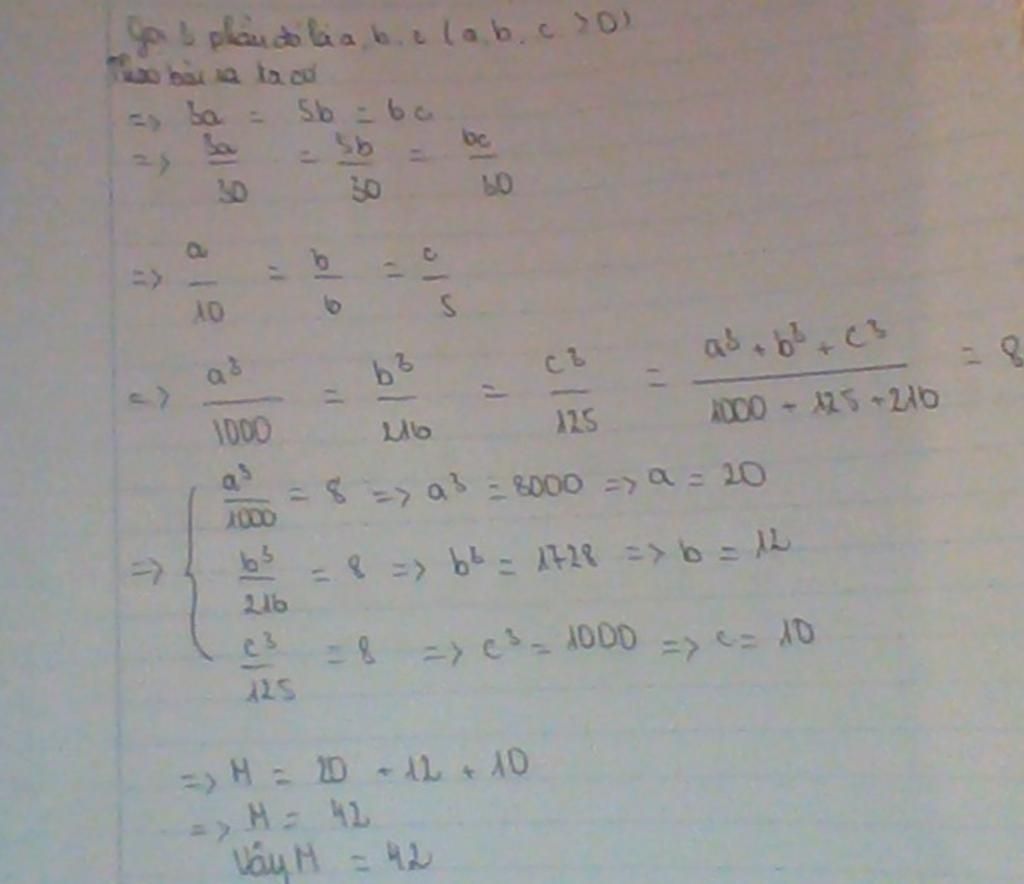 Gọi 3 phần đó là a, b, c (a, b, c > 0)
Theo bài ra ta có
=> 3a = 5b = 6c
=> 3a/30 = 5b/30 = 6c/30
=> a/10 = b/6 = c/5
=> a³/1000 = b³/216 = c³/125 = (a³ + b³ + c³)/(1000 + 125 + 216) = 8
=> { a³/1000 = 8 => a³ = 8000 => a = 20
b³/216 = 8 => b³ = 1728 => b = 12
c³/125 = 8 => c³ = 1000 => c = 10
=> M = 20 + 12 + 10
=> M = 42
Vậy M = 42